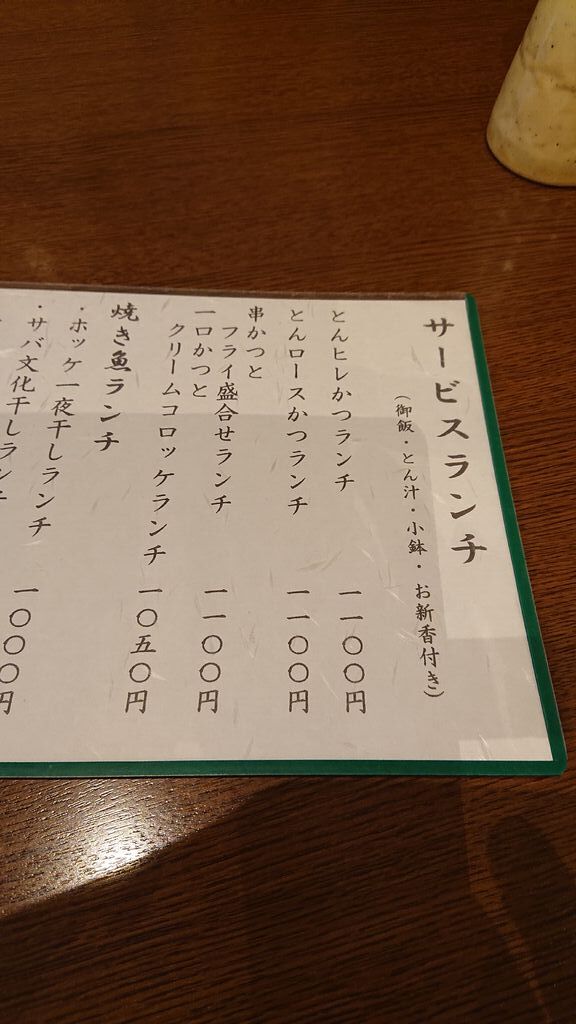 サービスランチ
（御飯・とん汁・小鉢・お新香付き）
とんヒレかつランチ 一一〇〇円
とんロースかつランチ 一一〇〇円
串かつと
フライ盛合せランチ 一一〇〇円
一口かつと
クリームコロッケランチ 一〇五〇円
焼き魚ランチ
・ホッケ一夜干しランチ 一〇〇〇円
・サバ文化干しランチ